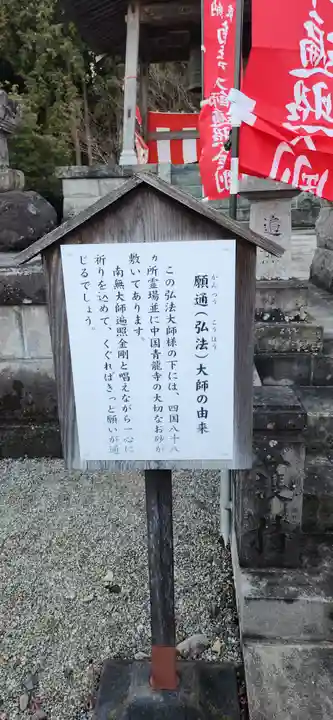 願通(弘法)大師の由来
がんつう
こうほう
この弘法大師様の下には、四国八十八
ヵ所霊場並に中国青龍寺の大切なお砂が
敷いてあります。
南無大師遍照金剛と唱えながら一心に
祈りを込めて、くぐればきっと願いが通
じるでしょう。
大師遍照金剛
遍照